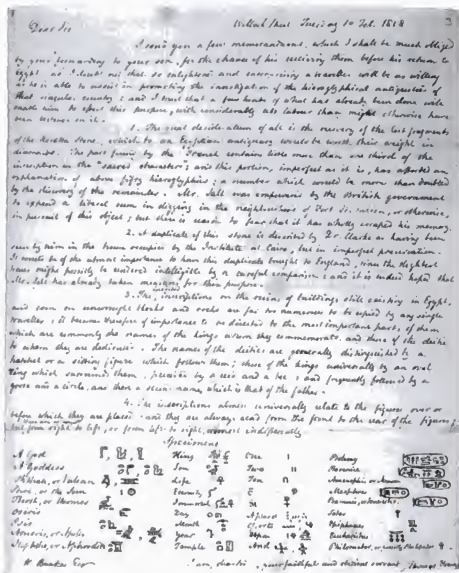 3
Dear Sir Welbeck Street Tuesday 10 Feb. 1818
I send you a few memorandums, which I shall be much obliged
by your forwarding to your son, for the chance of his receiving them before his return to
Egypt as I doubt not that so enlightened and enterprising a traveller will be as willing
as he is able to assist in promoting the investigation of the hieroglyphical antiquities of
that singular country: and I trust that a few hints of what has already been done will
enable him to effect this purpose, with considerably less labour than might otherwise have
been bestowed on it.
1. The most desirable object of all is the recovery of the lost fragments
of the Rosetta Stone, which to an Egyptian antiquary would be worth their weight in
diamonds. The part found by the French contains little more than one third of the
inscription in the "sacred characters"; and this portion, imperfect as it is, has afforded an
explanation of above fifty hieroglyphics; a number which would be more than doubled
by the discovery of the remainder. Mr. Salt was empowered by the British government
to expend a liberal sum in digging in the neighbourhood of Fort St. Julien, or otherwise,
in pursuit of this object; but there is reason to fear that it has wholly escaped his memory.
2. A duplicate of this stone is described by Dr. Clarke as having been
seen by him in the house occupied by the Institute at Cairo, but in imperfect preservation.
It would be of the utmost importance to have this duplicate brought to England, since the
might possibly be rendered intelligible by a careful comparison: and it is indeed hoped that
Mr. Salt has already taken measures for this purpose.
3. The inscriptions on the ruins of buildings still existing in Egypt,
and even on unwrought blocks and rocks are far too numerous to be copied by any single
traveller; it becomes therefore of importance to be directed to the most important parts, of them
which are commonly the names of the kings whom they commemorate, and those of the deities
to whom they are dedicated. The names of the deities are generally distinguished by a
hatchet or a sitting figure which follows them; those of the kings universally by an oval
ring which surrounds them, preceded by a reed and a bee: and frequently followed by a
goose and a circle, and then a second name, which is that of the father.
4. The inscriptions almost universally relate to the figures over or
before which they are placed and they are always read from the front to the rear of the figures,
but from right to left, or from left to right, almost indifferently.
Specimens
A God King One Ptolemy
A Goddess Son Two Berenice
Phthah, or Vulcan Life Ten
Phre, or the Sun Eternity
Thoth, or Hermes Immortal
Osiris Day
Isis Month
Year
Temple And
W Bankes Esqr I am, dear Sir, your faithful and obedient servant Thomas Young